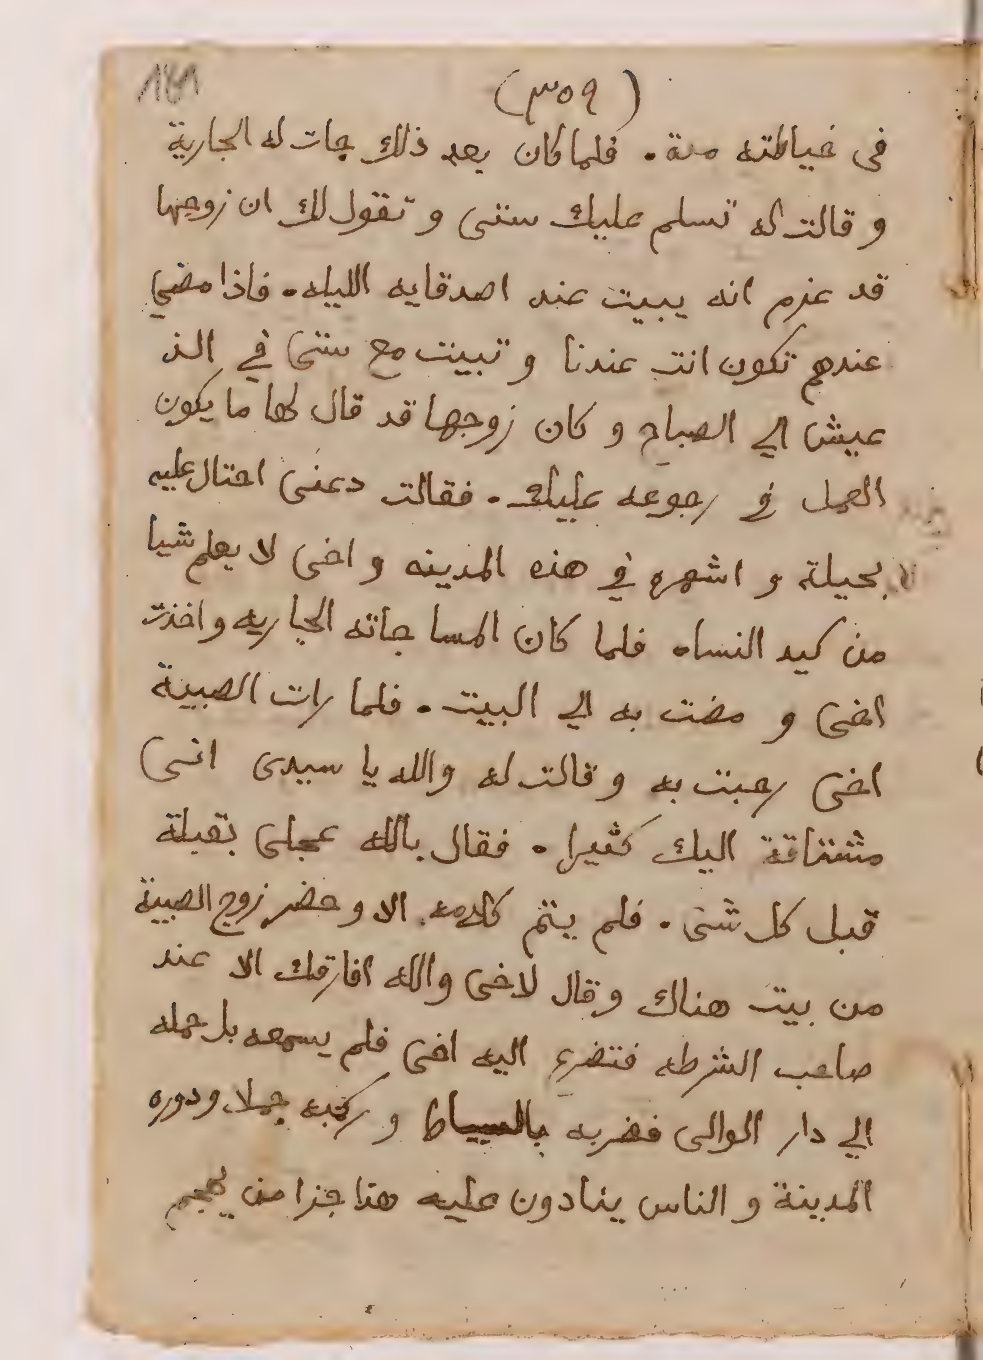 181
(٣٥٩)
فى خياطته مدة . فلما كان بعد ذلك جات له الجارية
و قالت له تسلم عليك ستى و تقول لك ان زوجها
قد عزم انه يبيت عند اصدقايه الليله . فاذا مضي
عندهم تكون انت عندنا و تبيت مع ستى في الذ
عيش الي الصباح و كان زوجها قد قال لها ما يكون
العمل في رجوعه عليك . فقالت دعنى احتال عليه
بحيلة و اشهره في هذه المدينه و اخى لا يعلم شيا
من كيد النساء فلما كان المسا جاته الجاريه واخذت
اخى و مضت به الي البيت . فلما رات الصبية
اخى رحبت به و قالت له والله يا سيدى اننى
مشتاقة اليك كثيرا . فقال بالله عجلى بقبلة
قبل كل شى . فلم يتم كلامه الا و حضر زوج الصبية
من بيت هناك و قال لاخى والله افارقك الا عند
صاحب الشرطه فتضرع اليه اخى فلم يسمعه بل حمله
الي دار الوالى فضربه بالسياط و ركبه جملا ودوره
المدينة و الناس ينادون عليه هذا جزا من يهجم